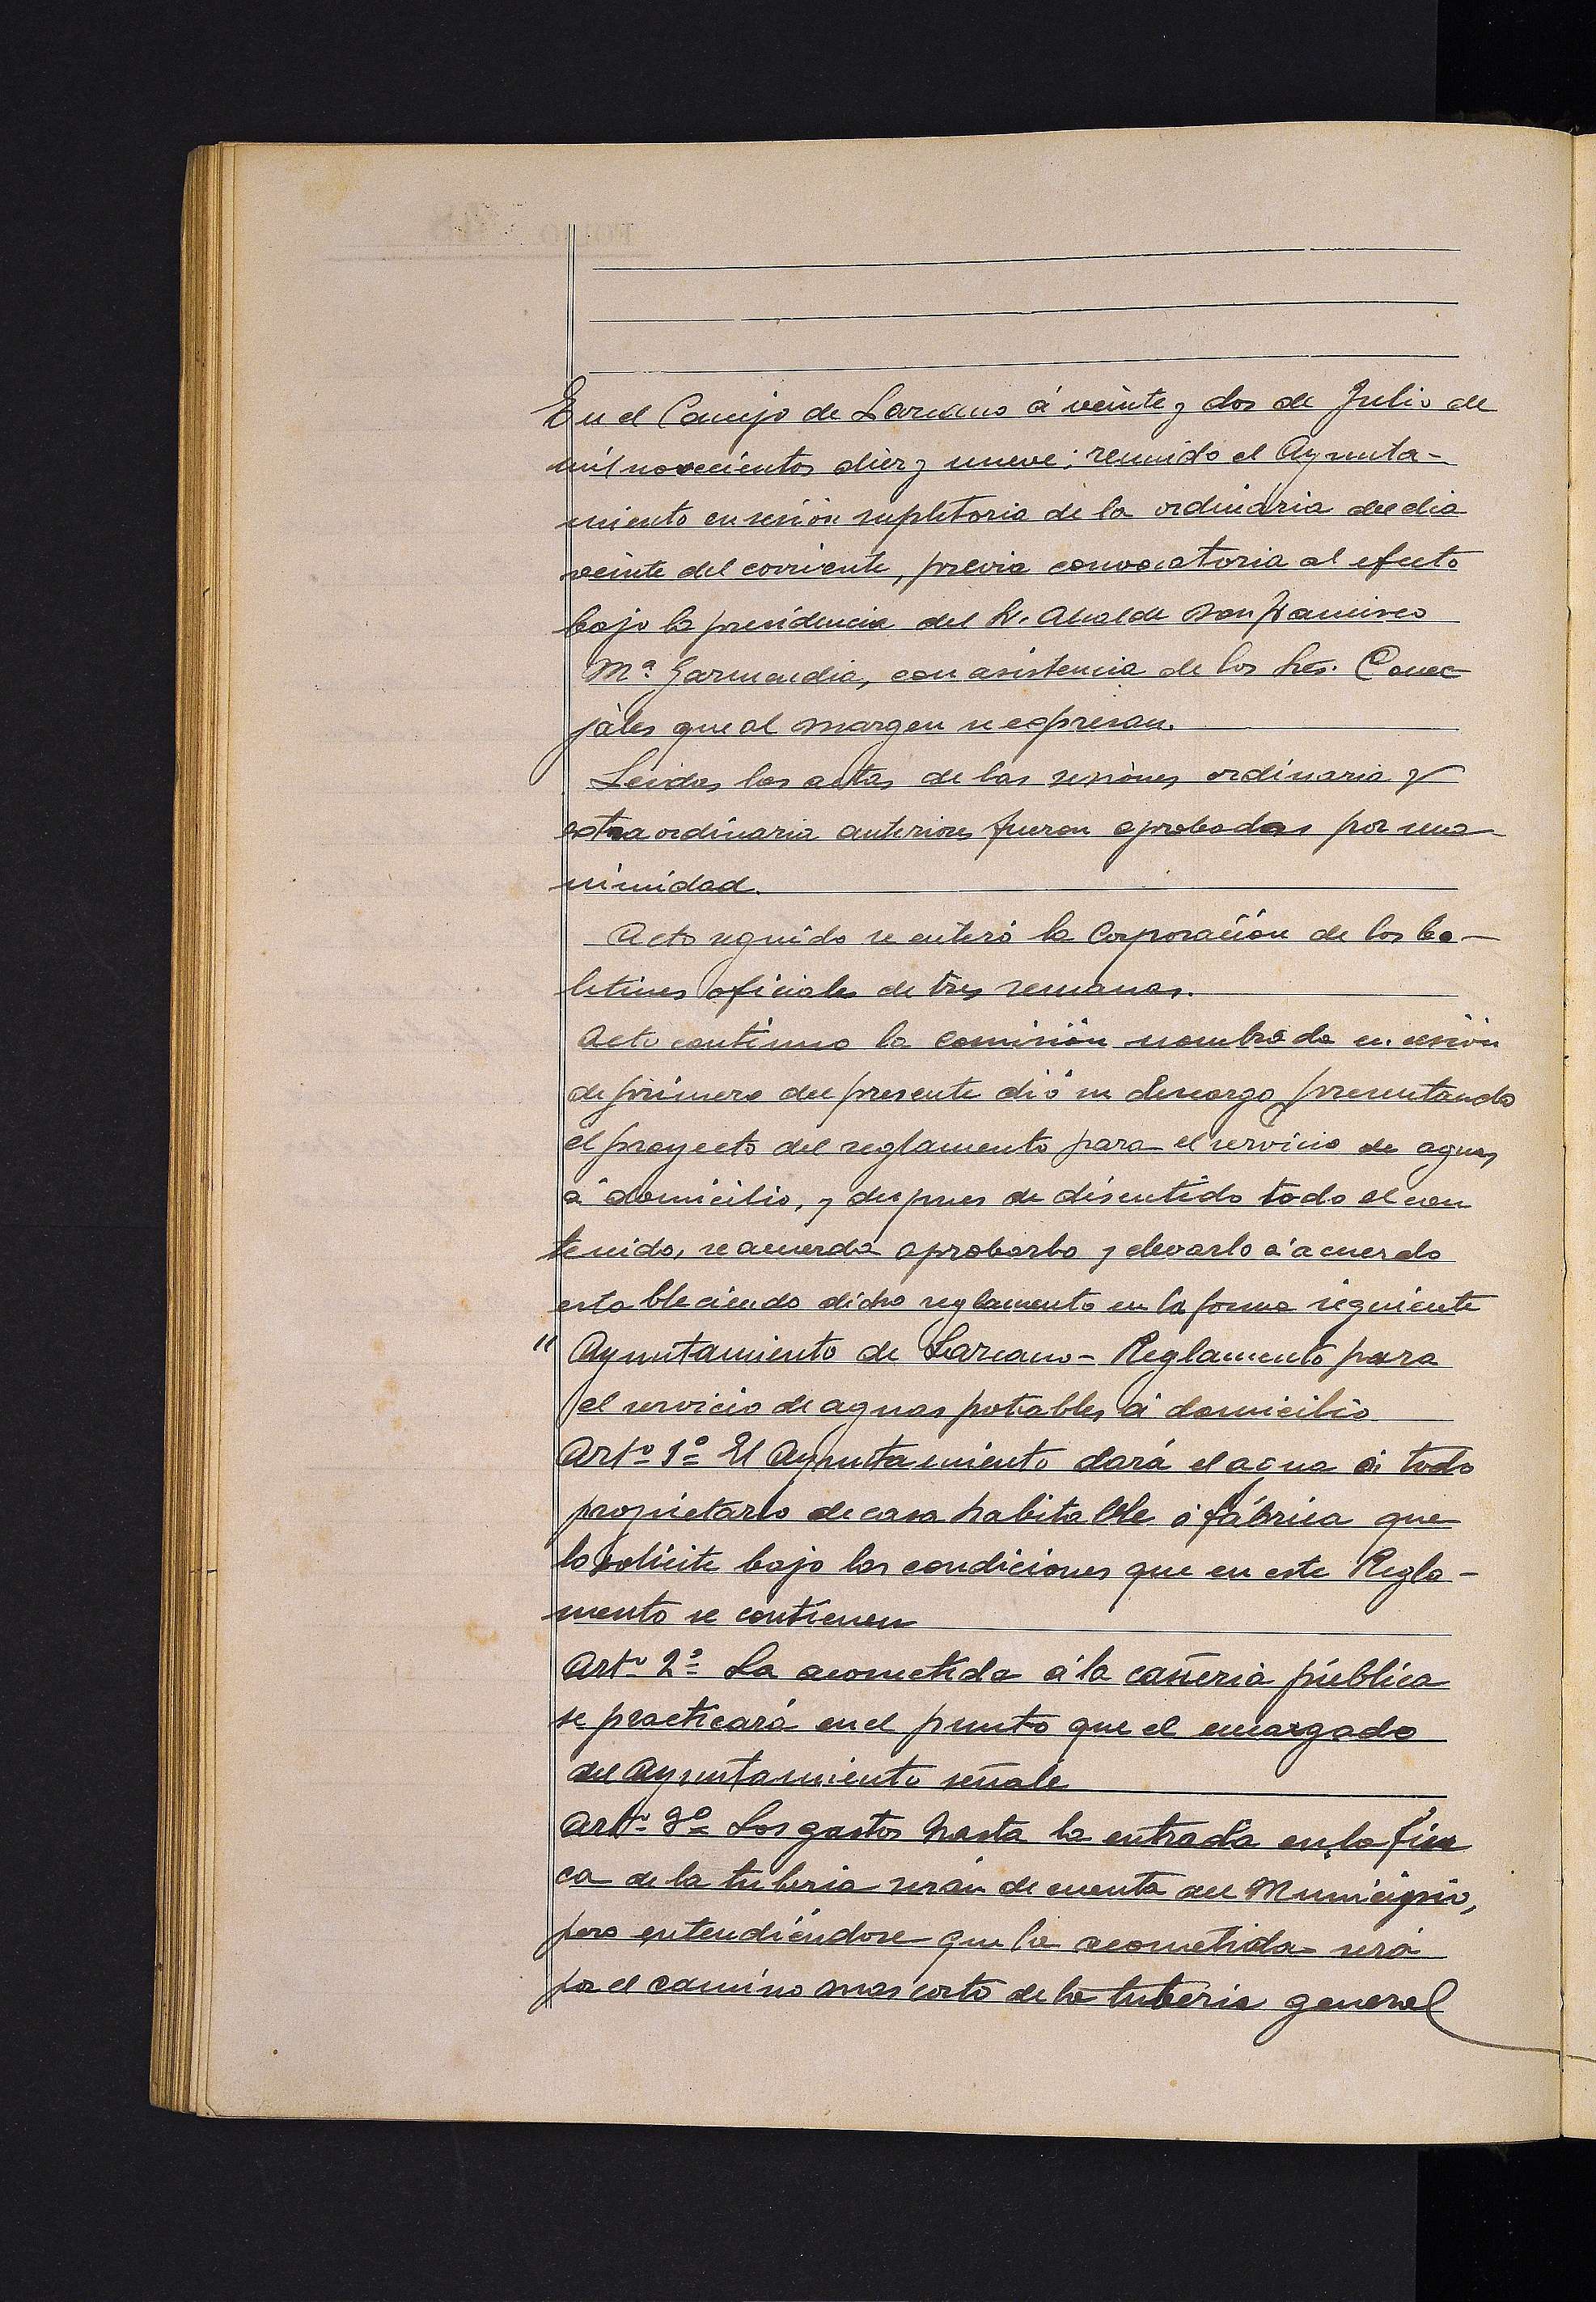 En el Concejo de Lazcano á veinte y dos de Julio de
mil novecientos diez y nueve; reunido el Ayunta-
miento en sesión supletoria de la ordinaria del dia
veinte del corriente, previa convocatoria al efecto
bajo la presidencia del Sr. Alcalde Don Francisco
Mª Garmendia, con asistencia de los Sres. Conce
jales que al margen se expresan.
Leidas las actas de las sesiones ordinaria y
extraordinaria anteriores fueron aprobadas por una
nimidad.
Acto seguido se enteró la Corporación de los bo-
letines oficiales de tres semanas.
Acto continuo la comisión nombrada en sesión
de primero del presente dió su descargo presentando
el proyecto del reglamento para el servicio de aguas
á domicilio, y despues de discutido todo el con
tenido, se acuerda aprobarlo y elevarlo á acuerdo
estableciendo dicho reglamento en la forma siguiente
" Ayuntamiento de Lazcano - Reglamento para
el servicio de aguas potables á domicilio
Artº 1º El Ayuntamiento dará el agua á todo
propietario de casa habitable ó fábrica que
lo solicite bajo las condiciones que en este Regla-
mento se contienen
Artº 2º La acometida á la cañeria pública
se practicará en el punto que el encargado
del Ayuntamiento señale
Artº 3º Los gastos hasta la entrada en la fin
ca de la tuberia serán de cuenta del Municipio,
pero entendiéndose que la acometida será
por el camino mas corto de la tuberia general